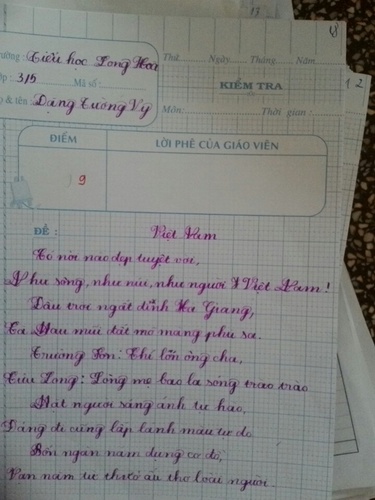 18
17
1 2
rường: Tiểu học Long Hoà
Thứ Ngày Tháng Năm
ớp: 3/5 Mã số:
KIỂM TRA
ọ & tên: Đặng Tường Vy
Môn: Thời gian:
ĐIỂM
LỜI PHÊ CỦA GIÁO VIÊN
9
ĐỀ: Việt Nam
Có nơi nào đẹp tuyệt vời,
Như sông, như núi, như người Việt Nam!
Đầu trời ngất đỉnh Hà Giang,
Cà Mau mũi đất mỡ màng phù sa.
Trường Sơn: Chí lớn ông cha,
Cửu Long: Lòng mẹ bao la sóng trào
Mặt người sáng ánh tự hào,
Dáng đi cũng lấp lánh màu tự do
Bốn ngàn năm dựng cơ đồ,
Vạn năm từ thuở ấu thơ loài người.